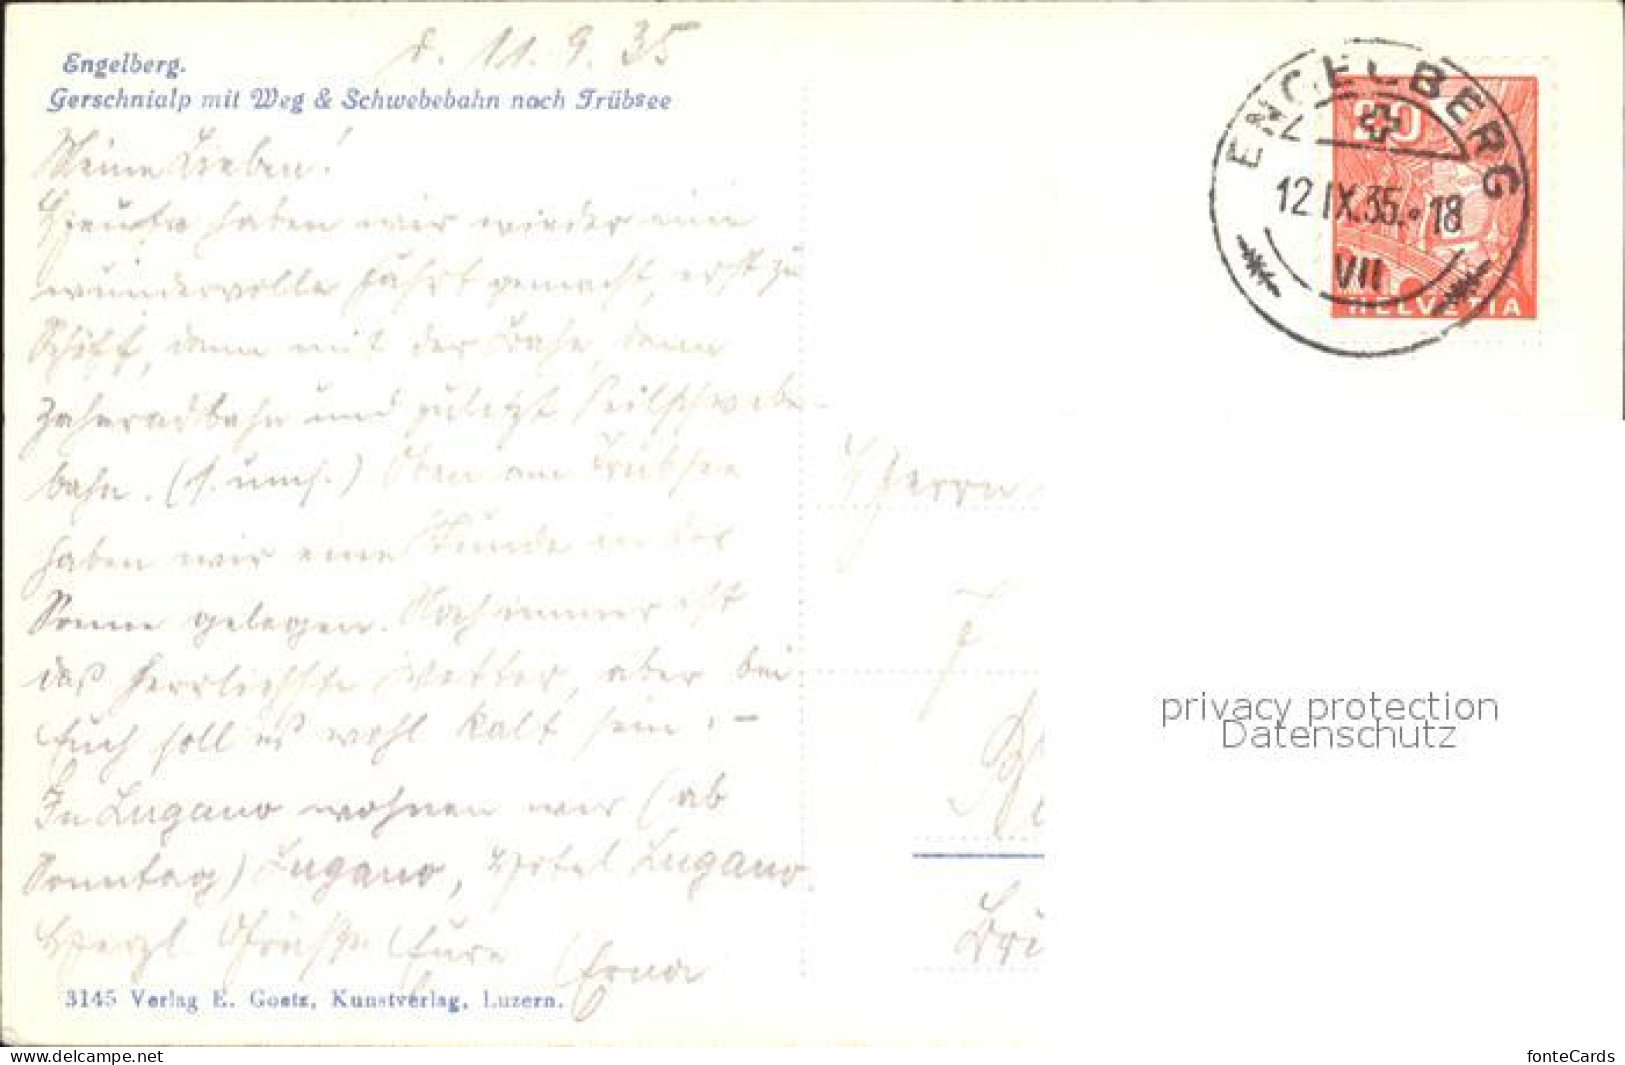 d. 11. 9. 35
Engelberg.
Gerschnialp mit Weg & Schwebebahn nach Trübsee
Meine Lieben!
Heute haben wir wieder eine
wundervolle Fahrt gemacht, erst zu
Schiff, dann mit der Bahn, dann
Zahnradbahn und zuletzt Seilschwebe-
bahn. (s. ums.) Oben am Trübsee
haben wir eine Stunde in der
Sonne gelegen. Noch immer ist
das herrlichste Wetter, aber bei
Euch soll es wohl kalt sein. –
In Lugano wohnen wir (ab
Sonntag) Lugano, Hotel Lugano
Herzl. Grüße Eure Erna
3145 Verlag E. Goetz, Kunstverlag, Luzern.
ENGELBERG
12.IX.35.-18
VII
20
HELVETIA
Herrn
privacy protection
Datenschutz
www.delcampe.net
fonteCards